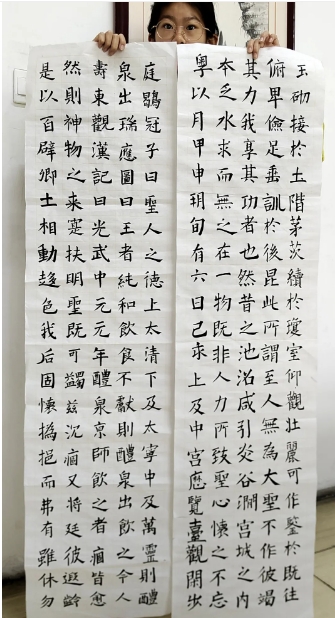 玉砌接於土階茅茨續於瓊室仰觀壯麗可作鑒於既往
俯卑儉足垂訓於後昆此所謂至人無為大聖不作彼竭
其力我享其功者也然昔之池沼咸引炎谷澗宮城之內
本乏水求而無之在一物既非人力所致聖心懷之不忘
粵以月甲申玥旬有六日己亥上及中宮歷覽臺觀閑步
庭鶡冠子曰聖人之德上太清下及太寧中及萬靈則醴
泉出瑞應圖曰王者純和飲食不獻則醴泉出飲之令人
壽東觀漢記曰光武中元元年醴泉京師飲之者痼皆愈
然則神物之來寔扶明聖既可蠲茲沉痼又將廷彼遐齡
是以百辟卿士相動趍色我后固懷撝挹而弗有雖休勿